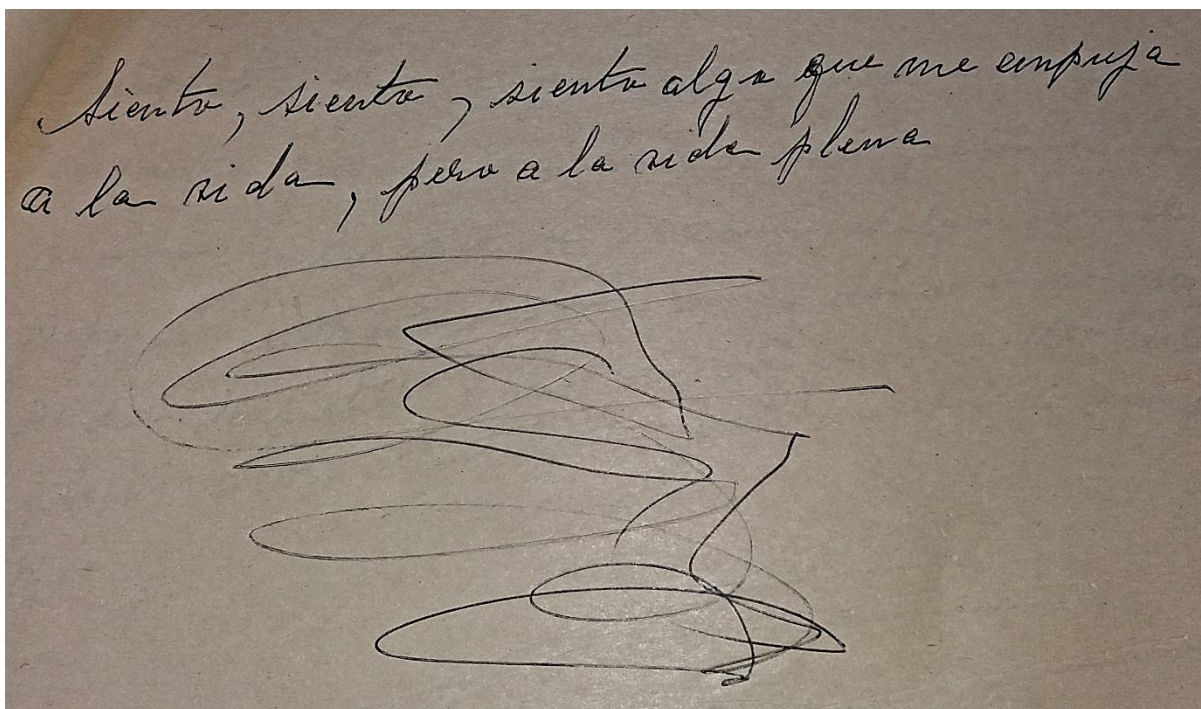 Siento, siento, siento algo que me empuja
a la vida, pero a la vida plena